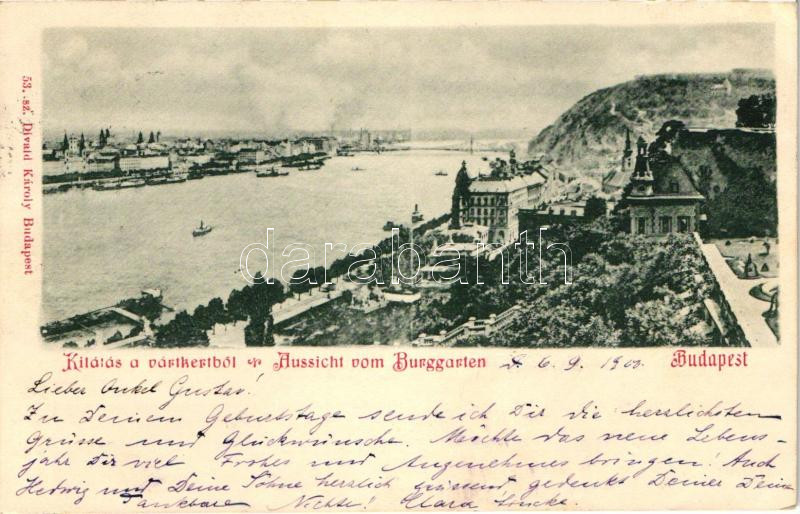 53. sz. Divald Károly Budapest
darabanth
Kilátás a vártkertből Aussicht vom Burggarten d. 6. 9. 1900. Budapest
Lieber Onkel Gustav!
Zu Deinem Geburtstage sende ich Dir die herzlichsten
Grüsse und Glückwünsche. Möchte das neue Lebens-
jahr Dir viel Frohes und Angenehmes bringen! Auch
Hedwig und Deine Söhne herzlich grüssend gedenkt Deiner Deine
Dankbare Nichte! Clara